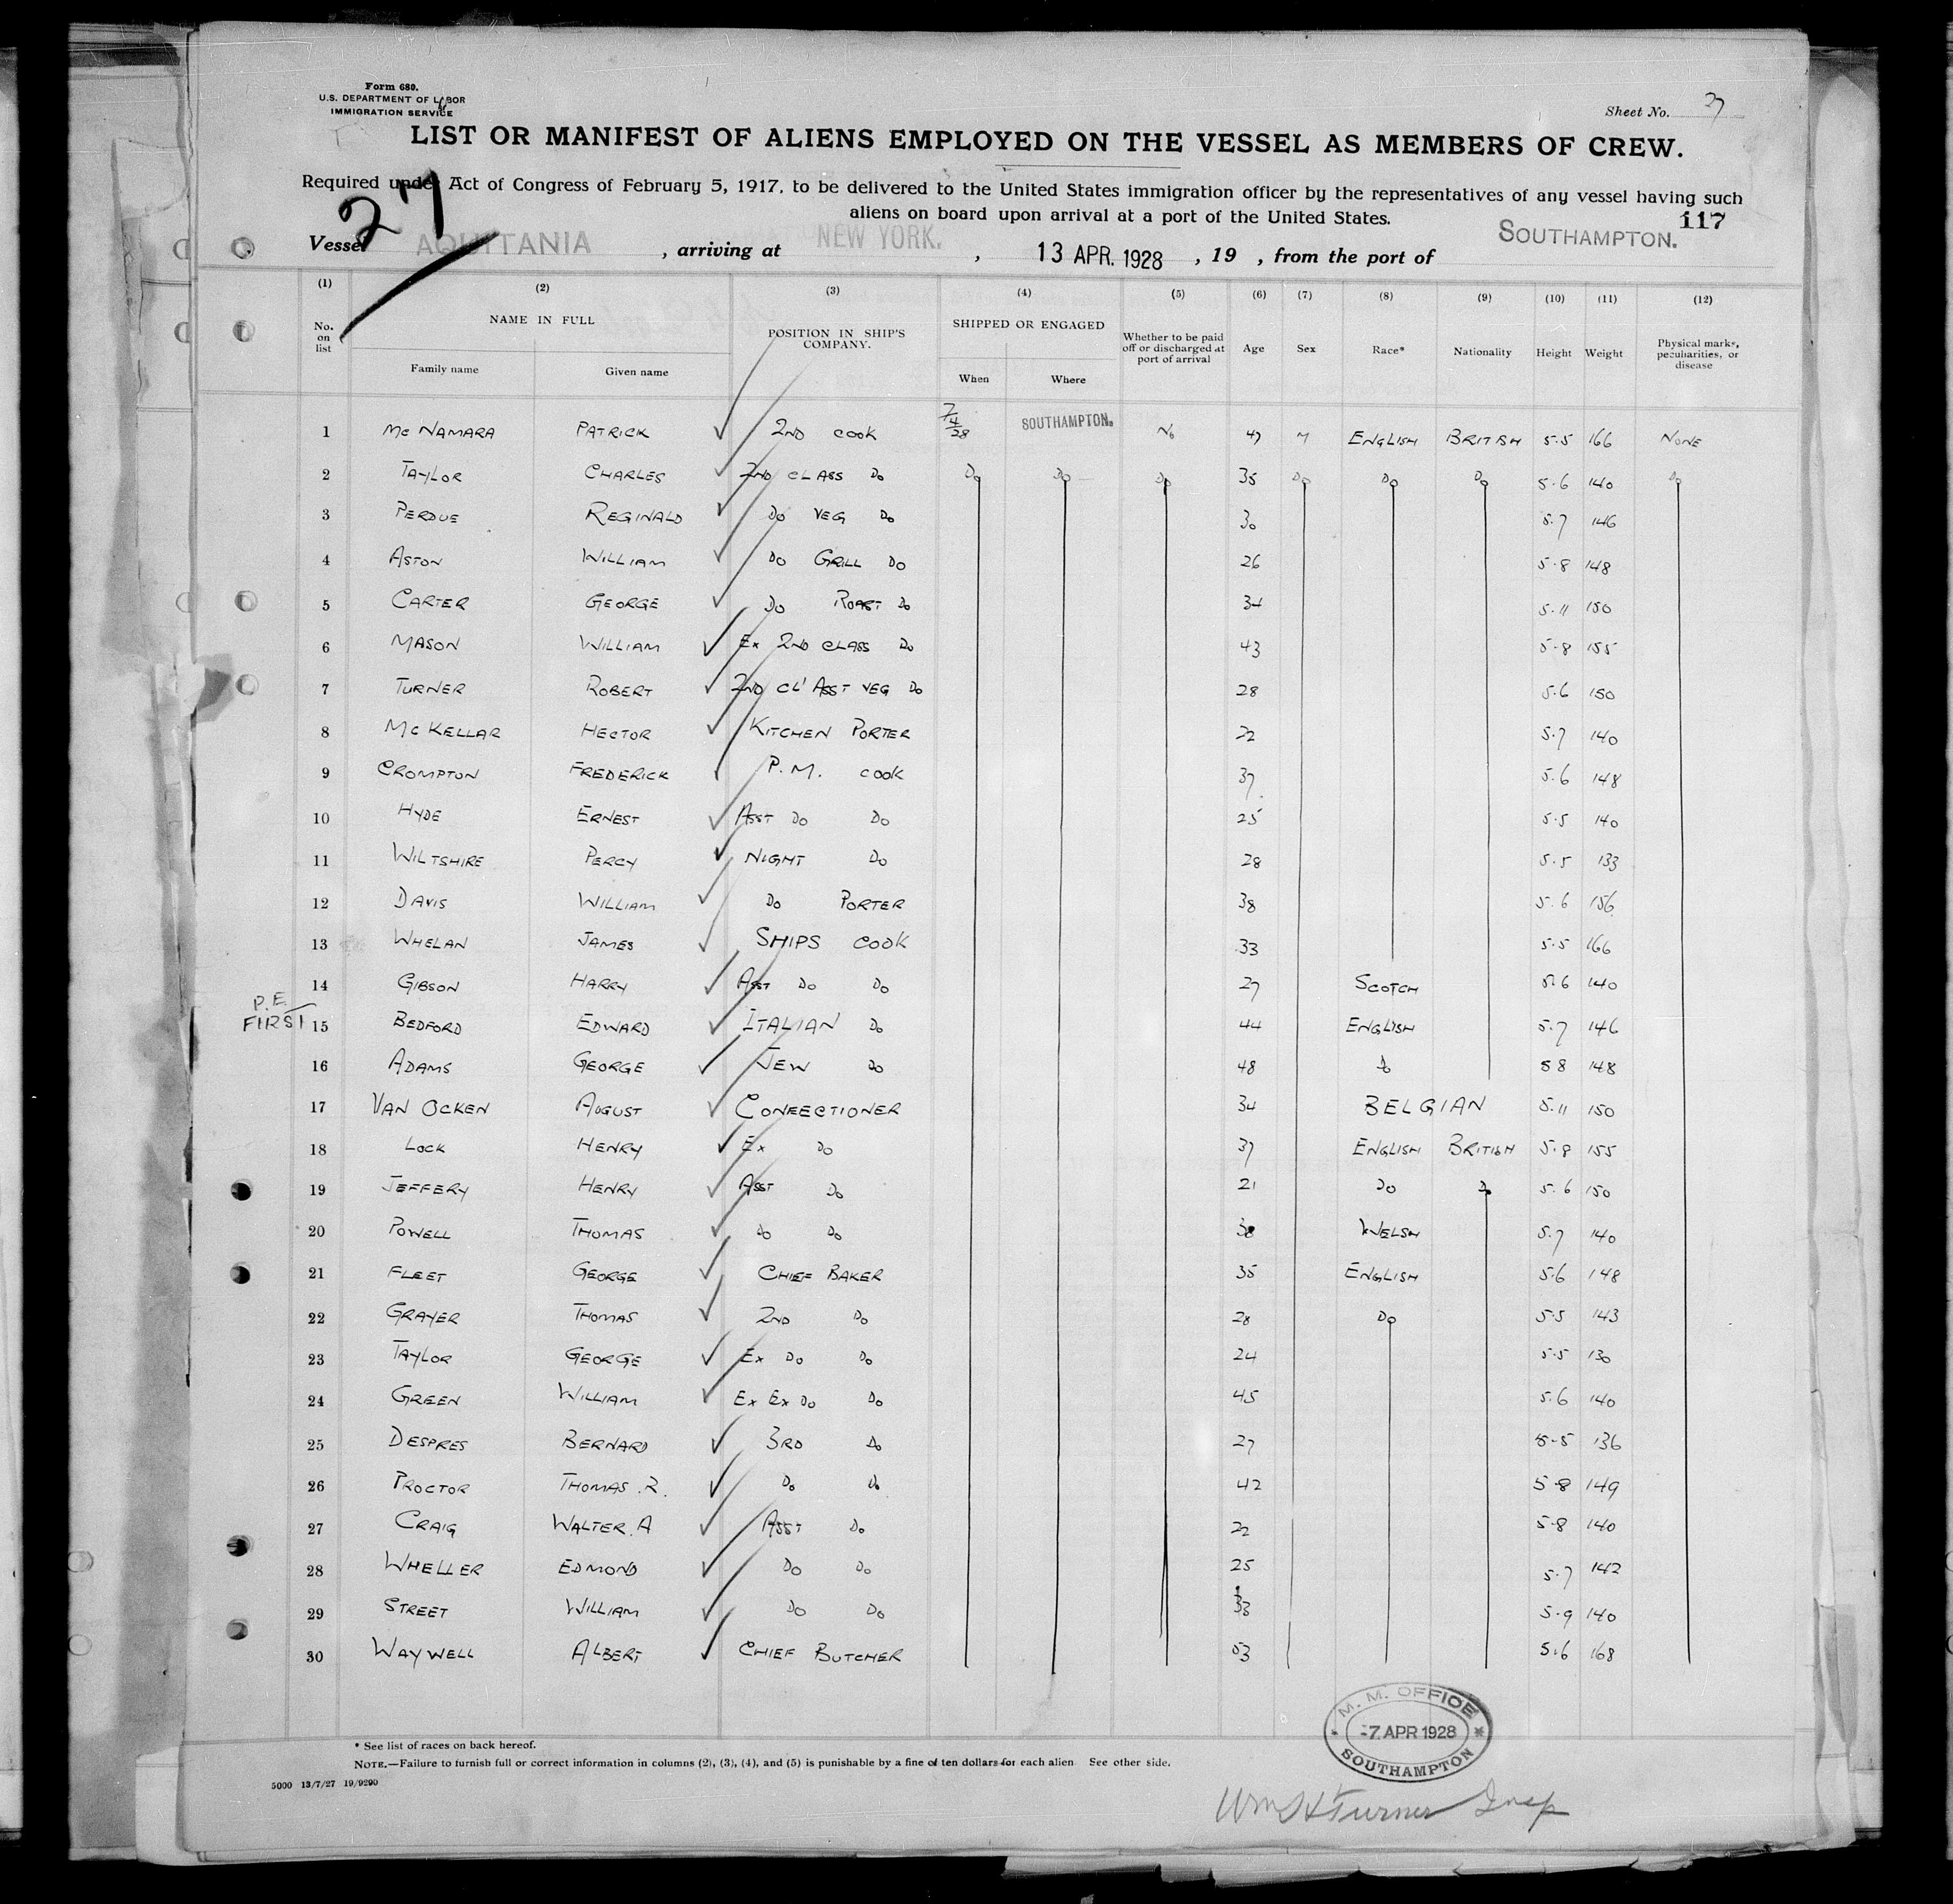 Form 680.
U.S. DEPARTMENT OF LABOR
IMMIGRATION SERVICE
Sheet No. 27
LIST OR MANIFEST OF ALIENS EMPLOYED ON THE VESSEL AS MEMBERS OF CREW.
Required under Act of Congress of February 5, 1917, to be delivered to the United States immigration officer by the representatives of any vessel having such
aliens on board upon arrival at a port of the United States.
27
117
Vessel AQUITANIA , arriving at NEW YORK. , 13 APR. 1928 , 19 , from the port of SOUTHAMPTON.
(1) (2) (3) (4) (5) (6) (7) (8) (9) (10) (11) (12)
No. on list NAME IN FULL Family name Given name POSITION IN SHIP'S COMPANY. SHIPPED OR ENGAGED When Where Whether to be paid off or discharged at port of arrival Age Sex Race* Nationality Height Weight Physical marks, peculiarities, or disease
1 McNAMARA PATRICK 2ND COOK 7/4/28 SOUTHAMPTON. No 47 M ENGLISH BRITISH 5.5 166 NONE
2 TAYLOR CHARLES 2ND CLASS Do Do Do Do 35 Do Do Do 5.6 140 Do
3 PERDUE REGINALD Do VEG Do 30 5.7 146
4 ASTON WILLIAM Do GRILL Do 26 5.8 148
5 CARTER GEORGE Do ROAST Do 34 5.11 150
6 MASON WILLIAM Ex 2ND CLASS Do 43 5.8 155
7 TURNER ROBERT 2ND CL' ASST VEG Do 28 5.6 150
8 McKELLAR HECTOR KITCHEN PORTER 22 5.7 140
9 CROMPTON FREDERICK P.M. COOK 37 5.6 148
10 HYDE ERNEST ASST Do Do 25 5.5 140
11 WILTSHIRE PERCY NIGHT Do 28 5.5 133
12 DAVIS WILLIAM Do PORTER 38 5.6 156
13 WHELAN JAMES SHIPS COOK 33 5.5 166
14 GIBSON HARRY ASST Do Do 27 SCOTCH 5.6 140
P.E. FIRST
15 BEDFORD EDWARD ITALIAN Do 44 ENGLISH 5.7 146
16 ADAMS GEORGE JEW Do 48 Do 5 8 148
17 VAN OCKEN AUGUST CONFECTIONER 34 BELGIAN 5.11 150
18 LOCK HENRY Ex Do 37 ENGLISH BRITISH 5.8 155
19 JEFFERY HENRY ASST Do 21 Do Do 5.6 150
20 POWELL THOMAS Do Do 38 WELSH 5.7 140
21 FLEET GEORGE CHIEF BAKER 35 ENGLISH 5.6 148
22 GRAYER THOMAS 2ND Do 28 Do 5.5 143
23 TAYLOR GEORGE Ex Do Do 24 5.5 130
24 GREEN WILLIAM Ex Ex Do Do 45 5.6 140
25 DESPRES BERNARD 3RD Do 27 5-5 136
26 PROCTOR THOMAS.R. Do Do 42 5-8 149
27 CRAIG WALTER.A ASST Do 22 5-8 140
28 WHELLER EDMOND Do Do 25 5.7 142
29 STREET WILLIAM Do Do 33 5.9 140
30 WAYWELL ALBERT CHIEF BUTCHER 53 5.6 168
M. M. OFFICE
-7 APR 1928
SOUTHAMPTON
* See list of races on back hereof.
NOTE.—Failure to furnish full or correct information in columns (2), (3), (4), and (5) is punishable by a fine of ten dollars for each alien See other side.
5000 13/7/27 19/9290
Wm H Turner Insp